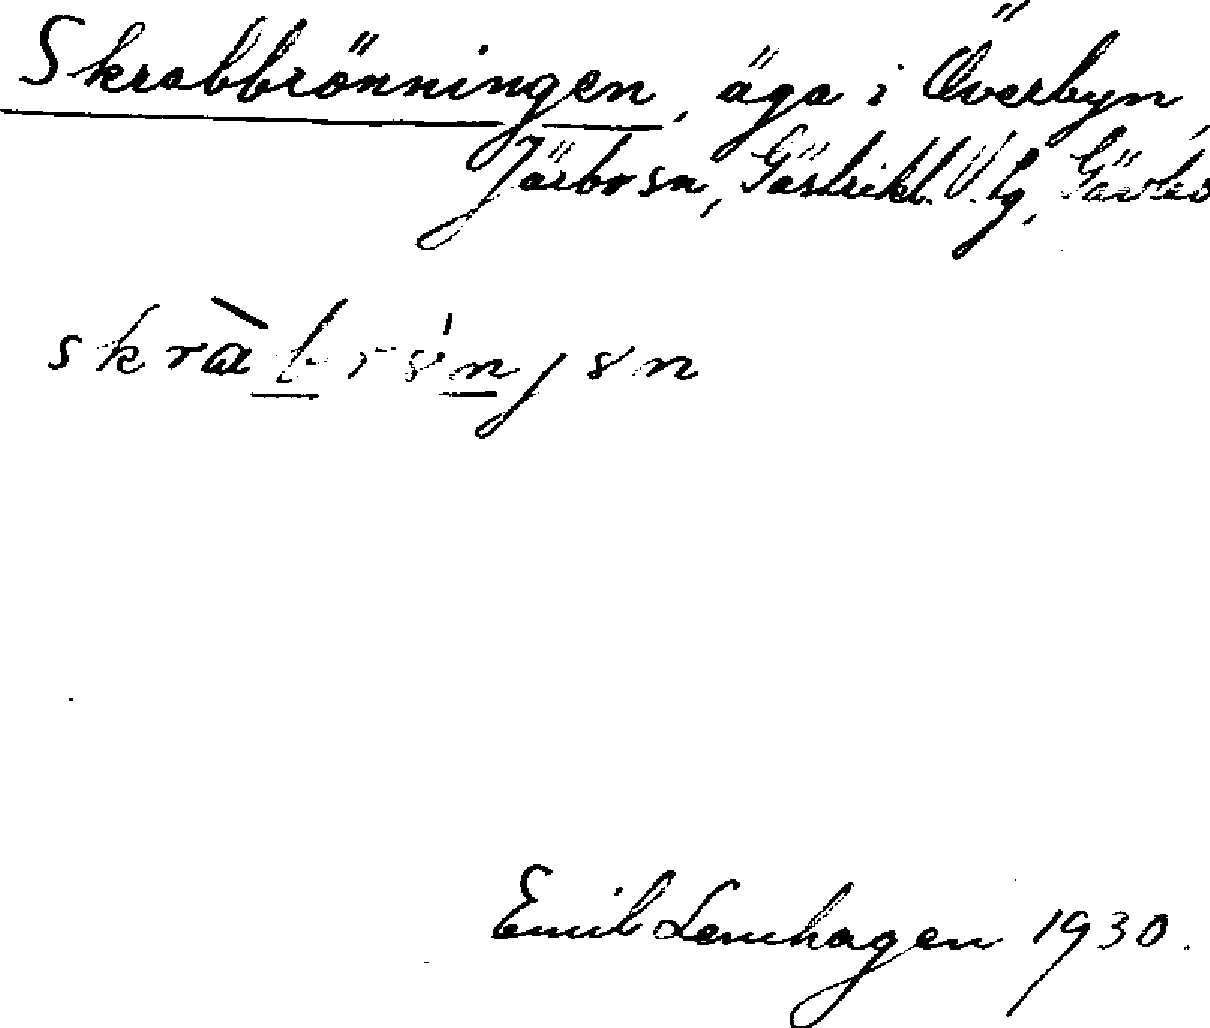 Skrabbrönningen, äga i Överbyn,
Järbo sn, Gästrikl. V. tg, Gävleb
Emil Lemhagen 1930.